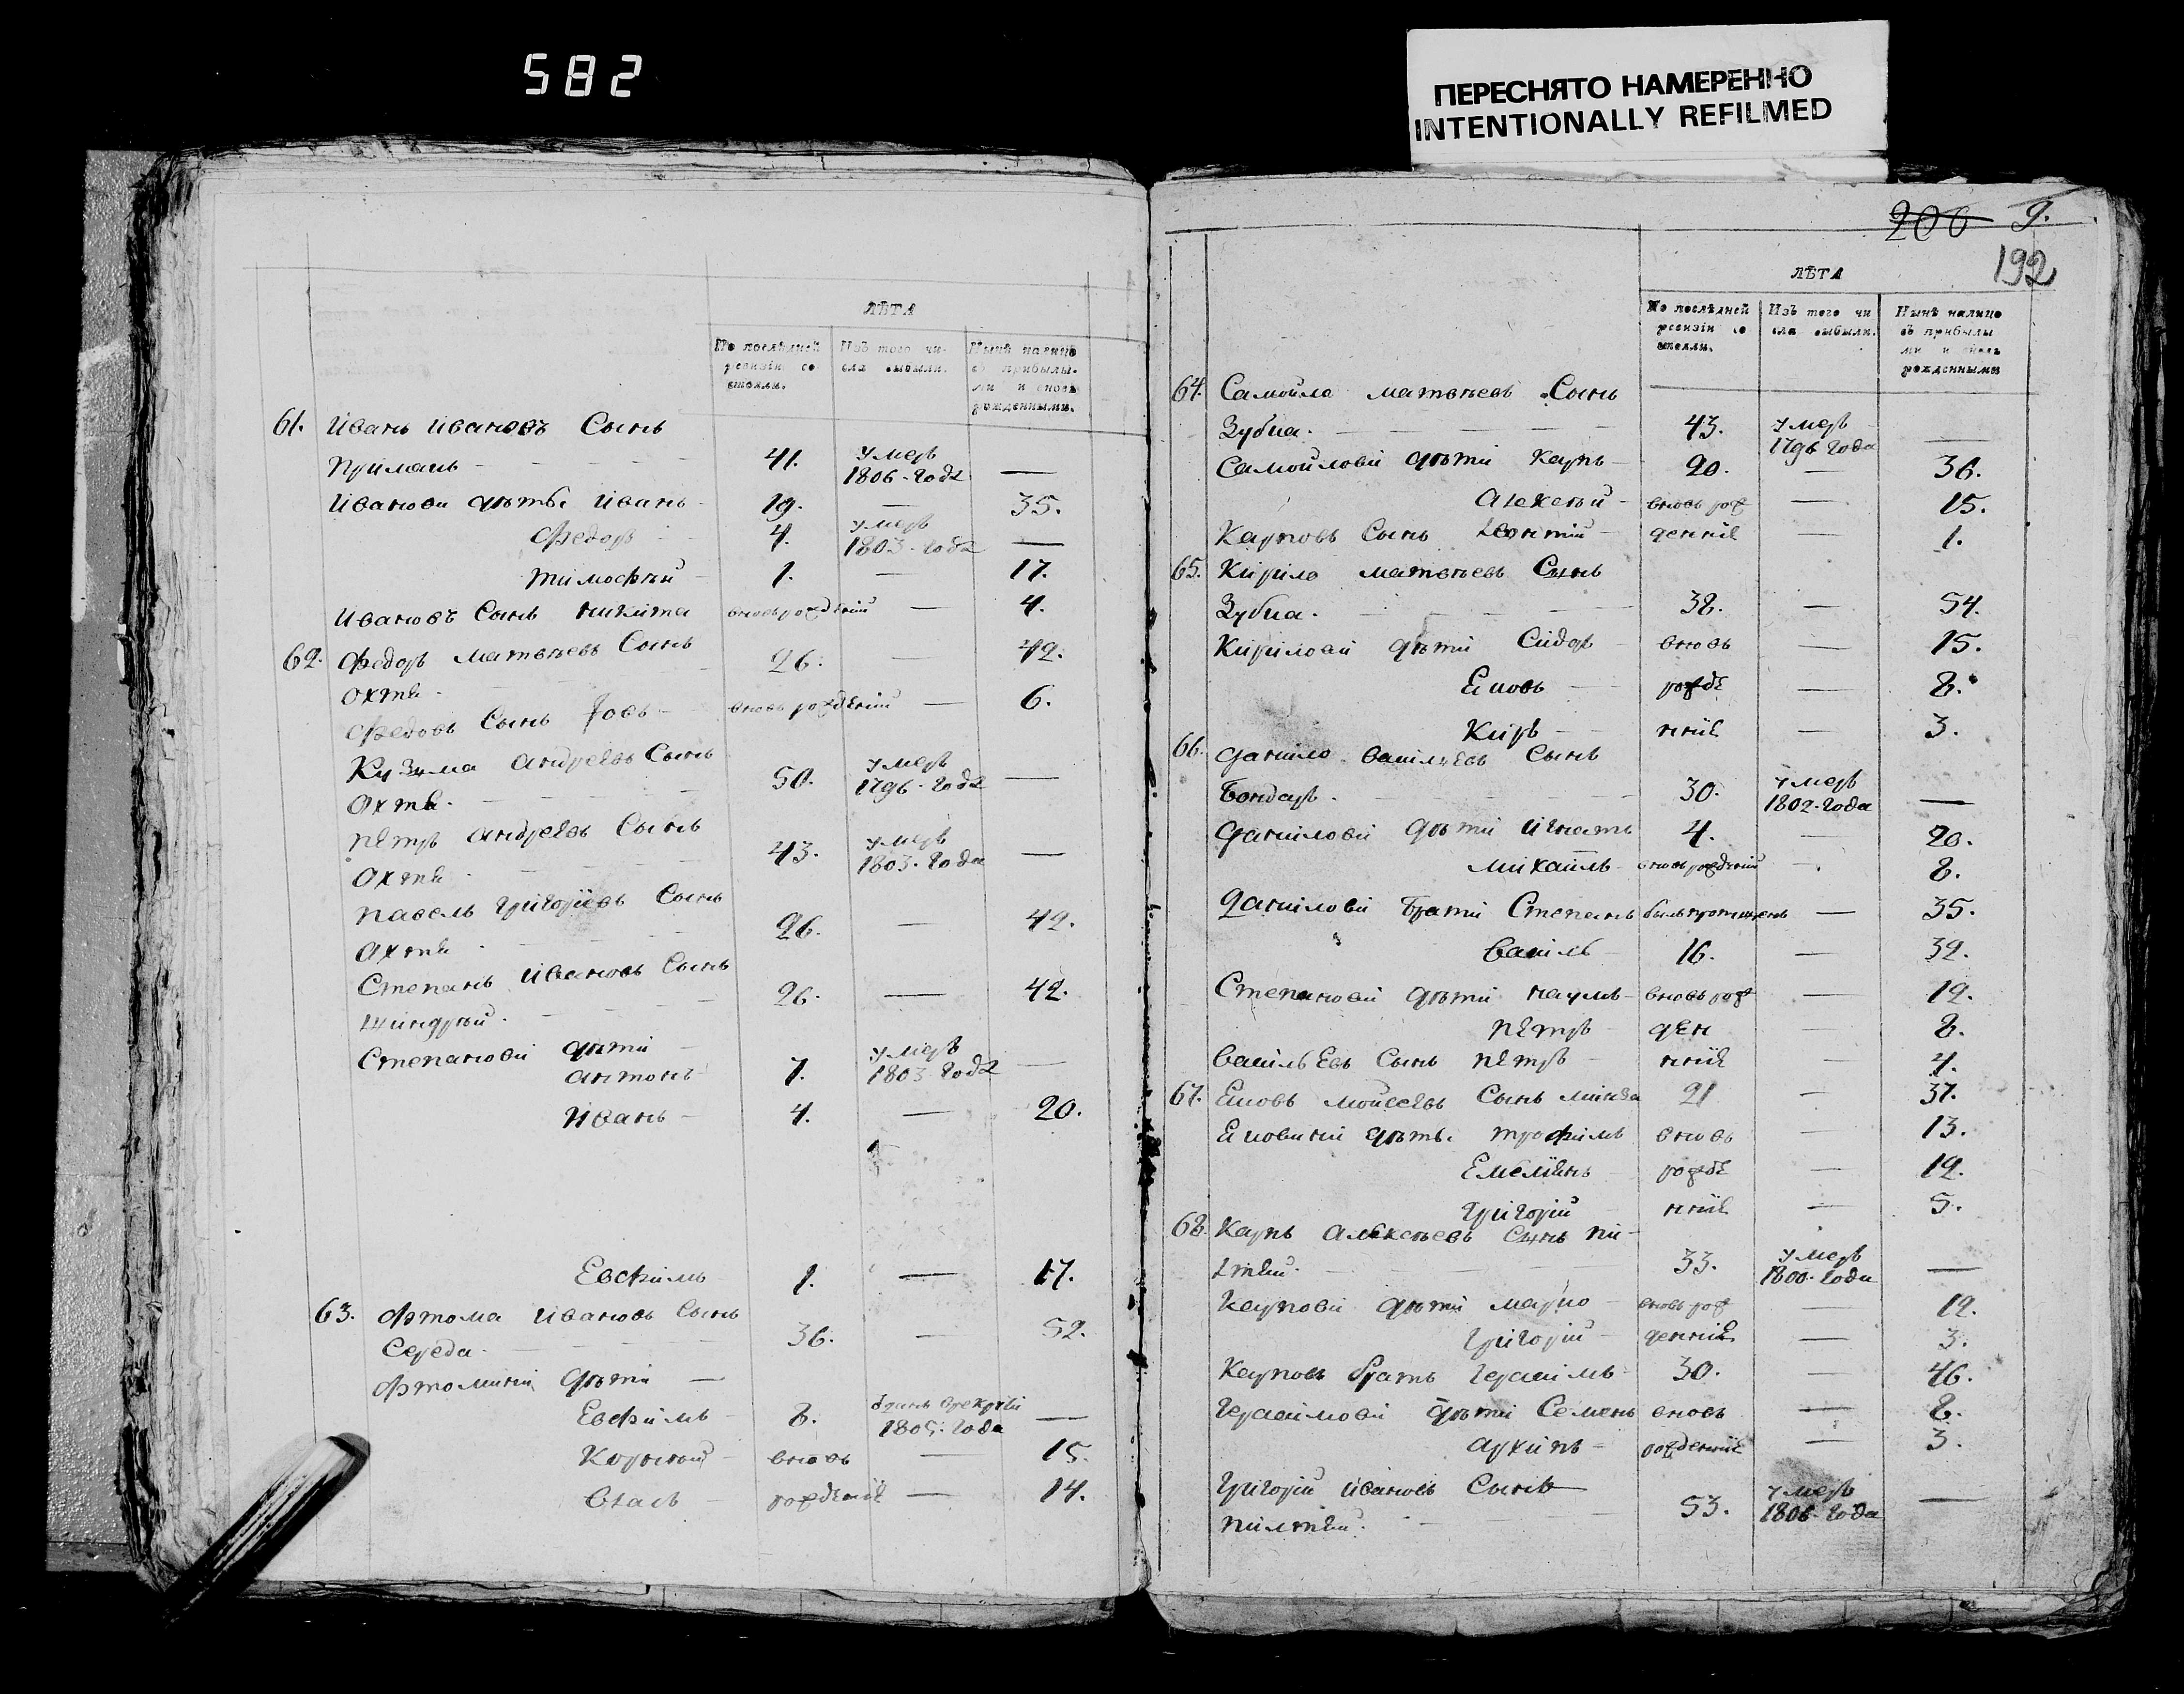 582
ПЕРЕСНЯТО НАМЕРЕННО
INTENTIONALLY REFILMED
ЛѢТА
По послѣдней ревизіи со стояли.
Изъ того чи- сла выбыли.
Нынѣ налицо съ прибылы- ми и вновь рожденными.
61. Иванъ Ивановъ Сынъ
41. умеръ 1806. года —
Ивановы дѣти Иванъ 19. — 35.
Федоръ 4. умеръ 1803. года —
Тимофѣй 1. — 17.
Ивановъ Сынъ Никита вновь рожденны — 4.
62. Федоръ Матвѣевъ Сынъ
Охтя 26. — 42.
Федовъ Сынъ Іовъ вновь рожденны — 6.
Кузьма Андреевъ Сынъ
Охтя. 50. умеръ 1796. года —
Петръ Андреевъ Сынъ
Охтя 43. умеръ 1803. года —
Павелъ Григоріевъ Сынъ
Охтя 26. — 42.
Степанъ Ивановъ Сынъ
26. — 42.
Степановы дѣти
Антонъ 7. умеръ 1803 года —
Иванъ 4. — 20.
Евфимъ 1. — 17.
63. Фтома Ивановъ Сынъ
Середа. 36. — 52.
Фтомины дѣти —
Евфимъ 8. 1805: года —
Корнѣй вновь — 15.
Власъ рожденніе — 14.
200 9.
192
ЛѢТА
По послѣдней ревизіи со стояли.
Изъ того чи сла выбыли.
Нынѣ налицо съ прибылы ми и вновь рожденными
64. Самойло Матвѣевъ Сынъ
Зубча. 43. умеръ 1796 года —
Самойловы дѣти Карпъ 20. — 36.
Алексѣй вновь рож — 15.
Карповъ Сынъ Леонтій денніе — 1.
65. Кирило Матвѣевъ Сынъ
Зубча. 38. — 54.
Кириловы дѣти Сидоръ вновь — 15.
Яковъ рожде — 8.
Киръ нніе — 3.
66. Данило Васильевъ Сынъ
Бондарь. 30. умеръ 1802. года —
Даниловы дѣти Игнатъ 4. — 20.
Михайлъ вновь рожденны — 8.
Даниловы Брати Степанъ былъ пропищенъ — 35.
Василь 16. — 32.
Степановы дѣти Наумъ вновь рож — 12.
Петръ ден — 8.
Васильевъ Сынъ Петръ нніе — 4.
67. Яковъ Мойсеевъ Сынъ 21 — 37.
Яковины дѣти. Трофимъ вновь — 13.
Емелянъ рожде — 12.
Григорій нніе — 5.
68. Карпъ Алексѣевъ Сынъ Пи-
лтяй. 33. умеръ 1800. года —
Карповы дѣти Марко вновь рож — 12.
Григорій денніе — 3.
Карповъ братъ Герасимъ 30. — 46.
Герасимовы дѣти Семенъ вновь — 8.
Архипъ рожденніе — 3.
Григорій Ивановъ Сынъ
Пилтяй. 53. умеръ 1806. года —